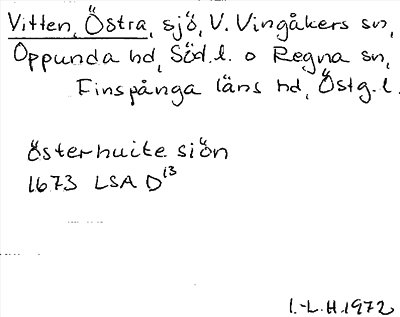 Vitten, Östra, sjö, V. Vingåkers sn,
Oppunda hd, Söd.l. o Regna sn,
Finspånga läns hd, Östg.l.
österhuite siön
1673 LSA D13
I.-L.H.1972